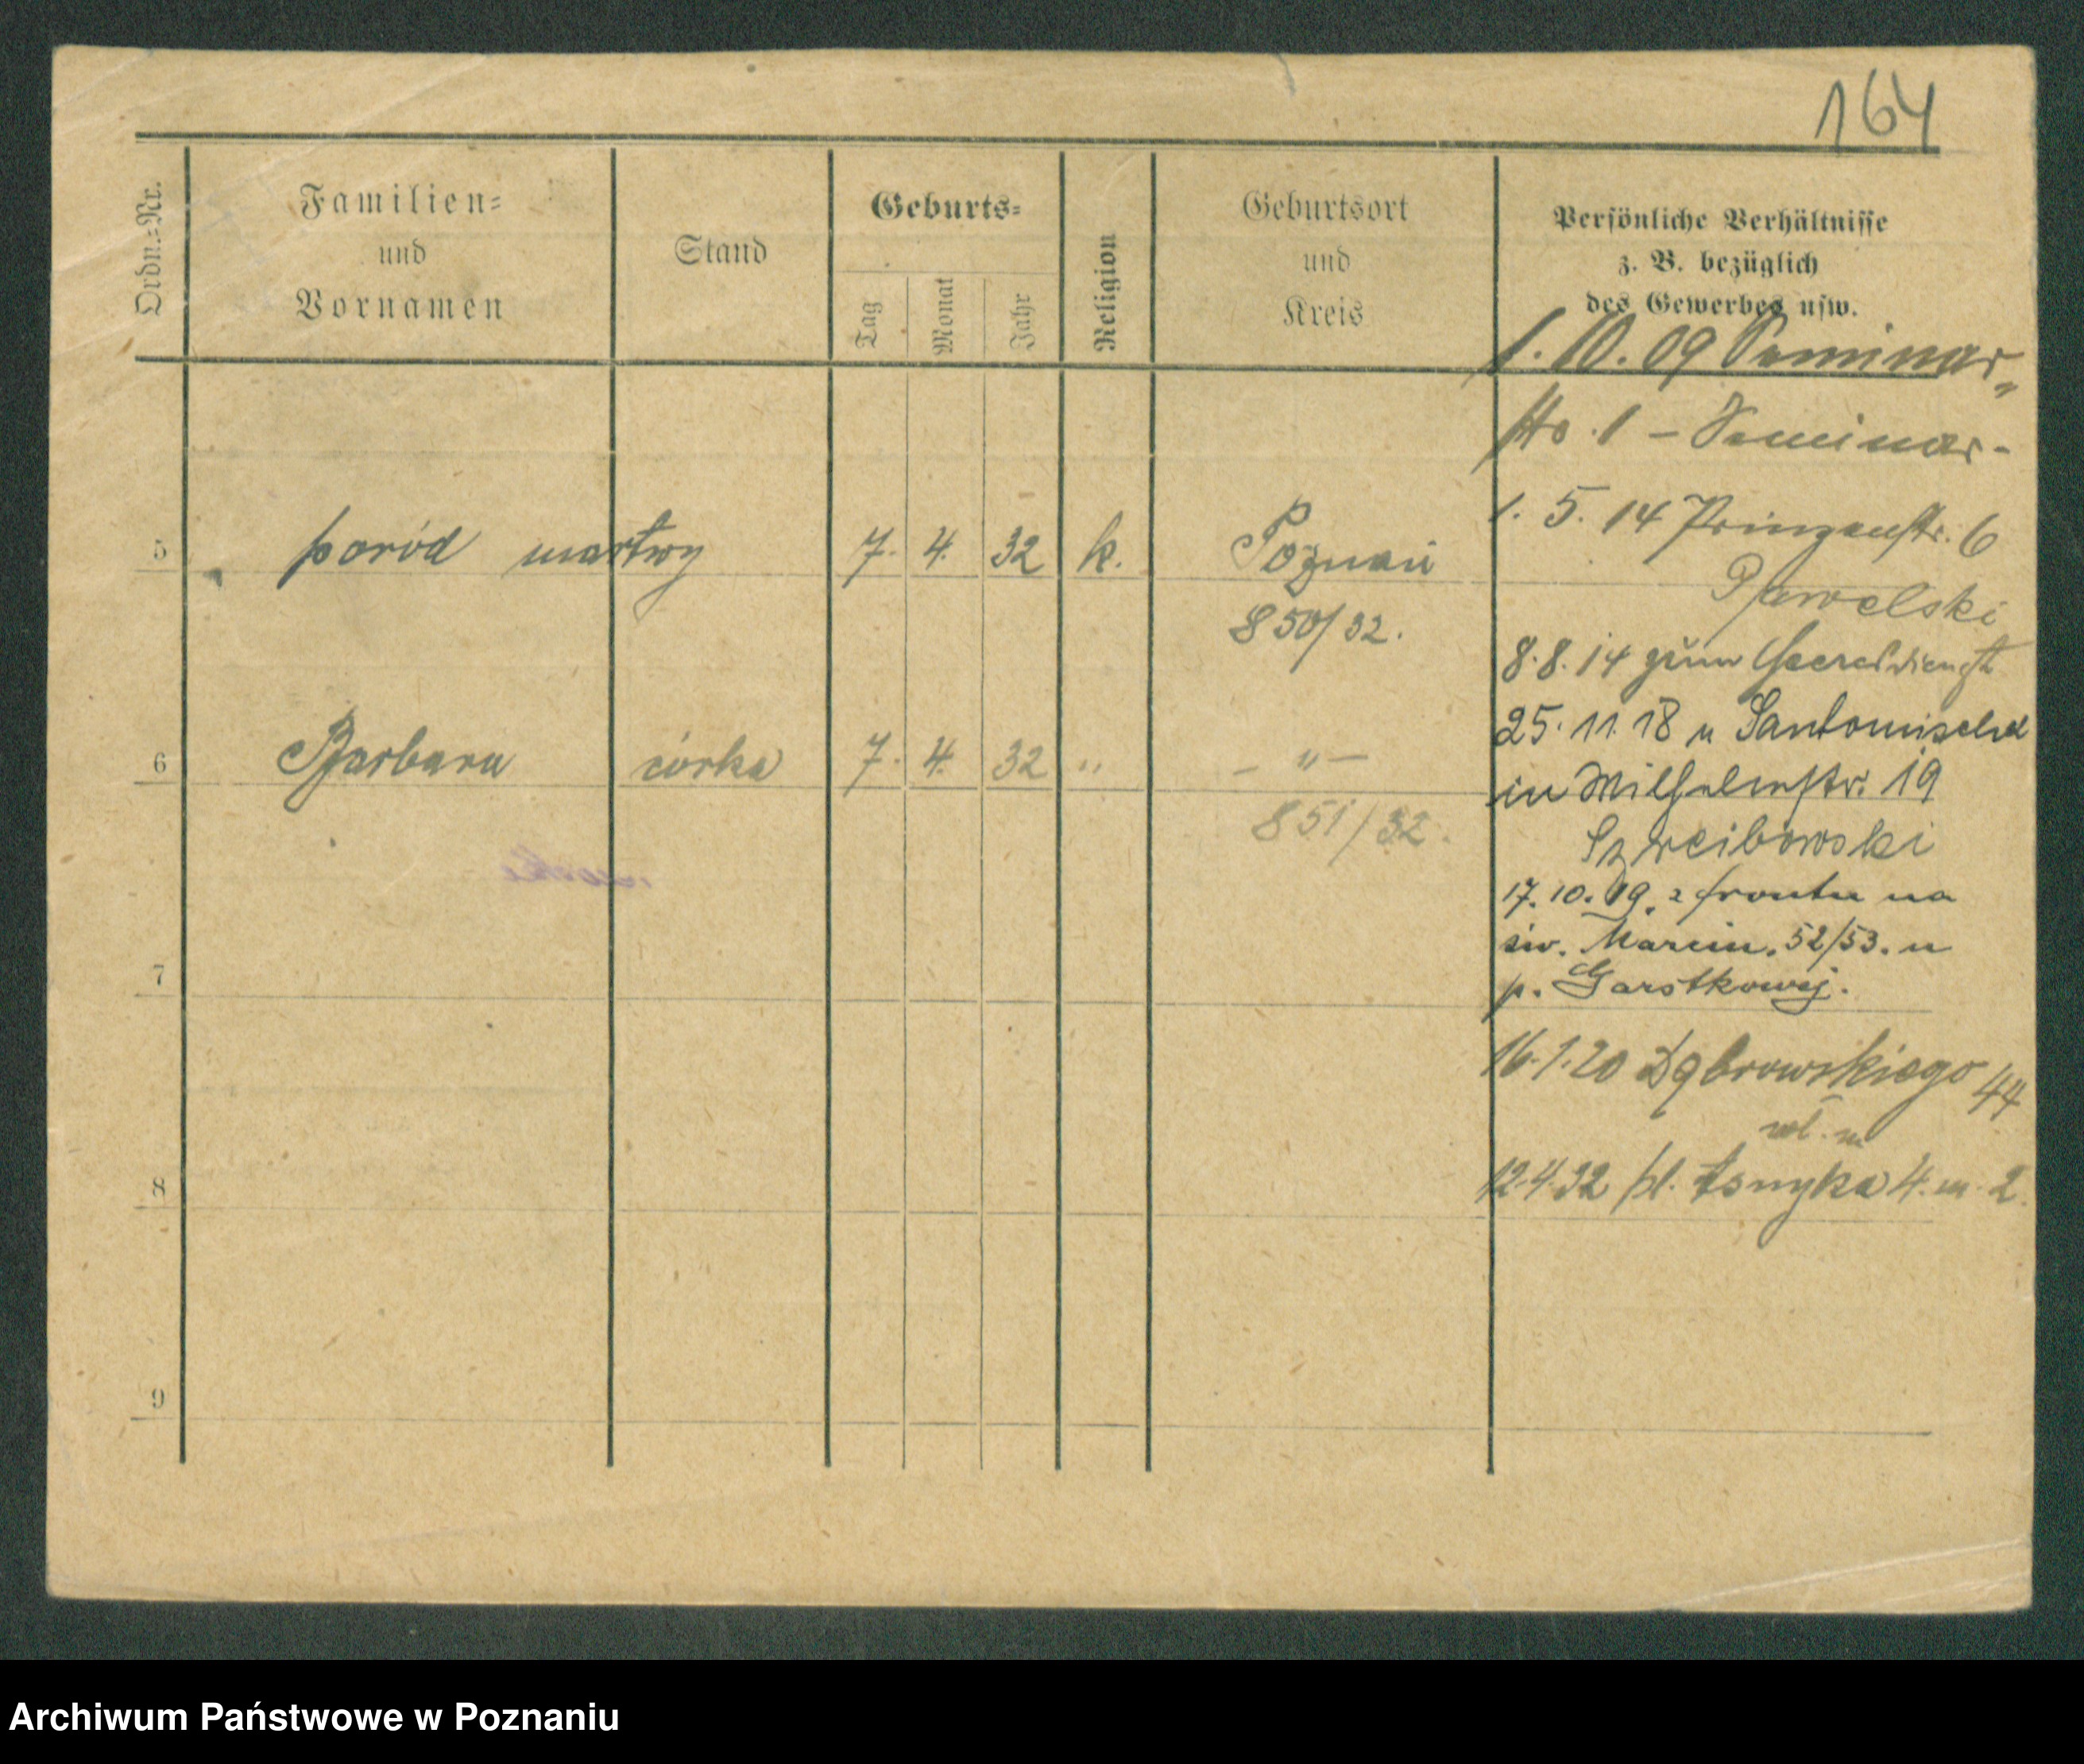 164
Ordn.-Nr.
Familien-
und
Vornamen
Stand
Geburts-
Tag
Monat
Jahr
Religion
Geburtsort
und
Kreis
Persönliche Verhältnisse
z. B. bezüglich
des Gewerbes usw.
1. 10. 09 Seminar-
1 - Seminar-
1. 5. 14 Prinzenstr. 6
Pawelski
8. 8. 14 zum Heeresdienst
25. 11. 18 u Santomischel
in Wilhelmstr. 19
17. 10. 19. z frontu na
św. Marcin. 52/53. u
p. Garstkowej.
16. 1. 20 Dąbrowskiego 44
12.4.32 pl. Asnyka 4. m. 2
5 poród martwy 7. 4. 32 k. Poznań
850/32.
6 Barbara córka 7. 4. 32 " - " -
851/32.
7
8
9
Archiwum Państwowe w Poznaniu